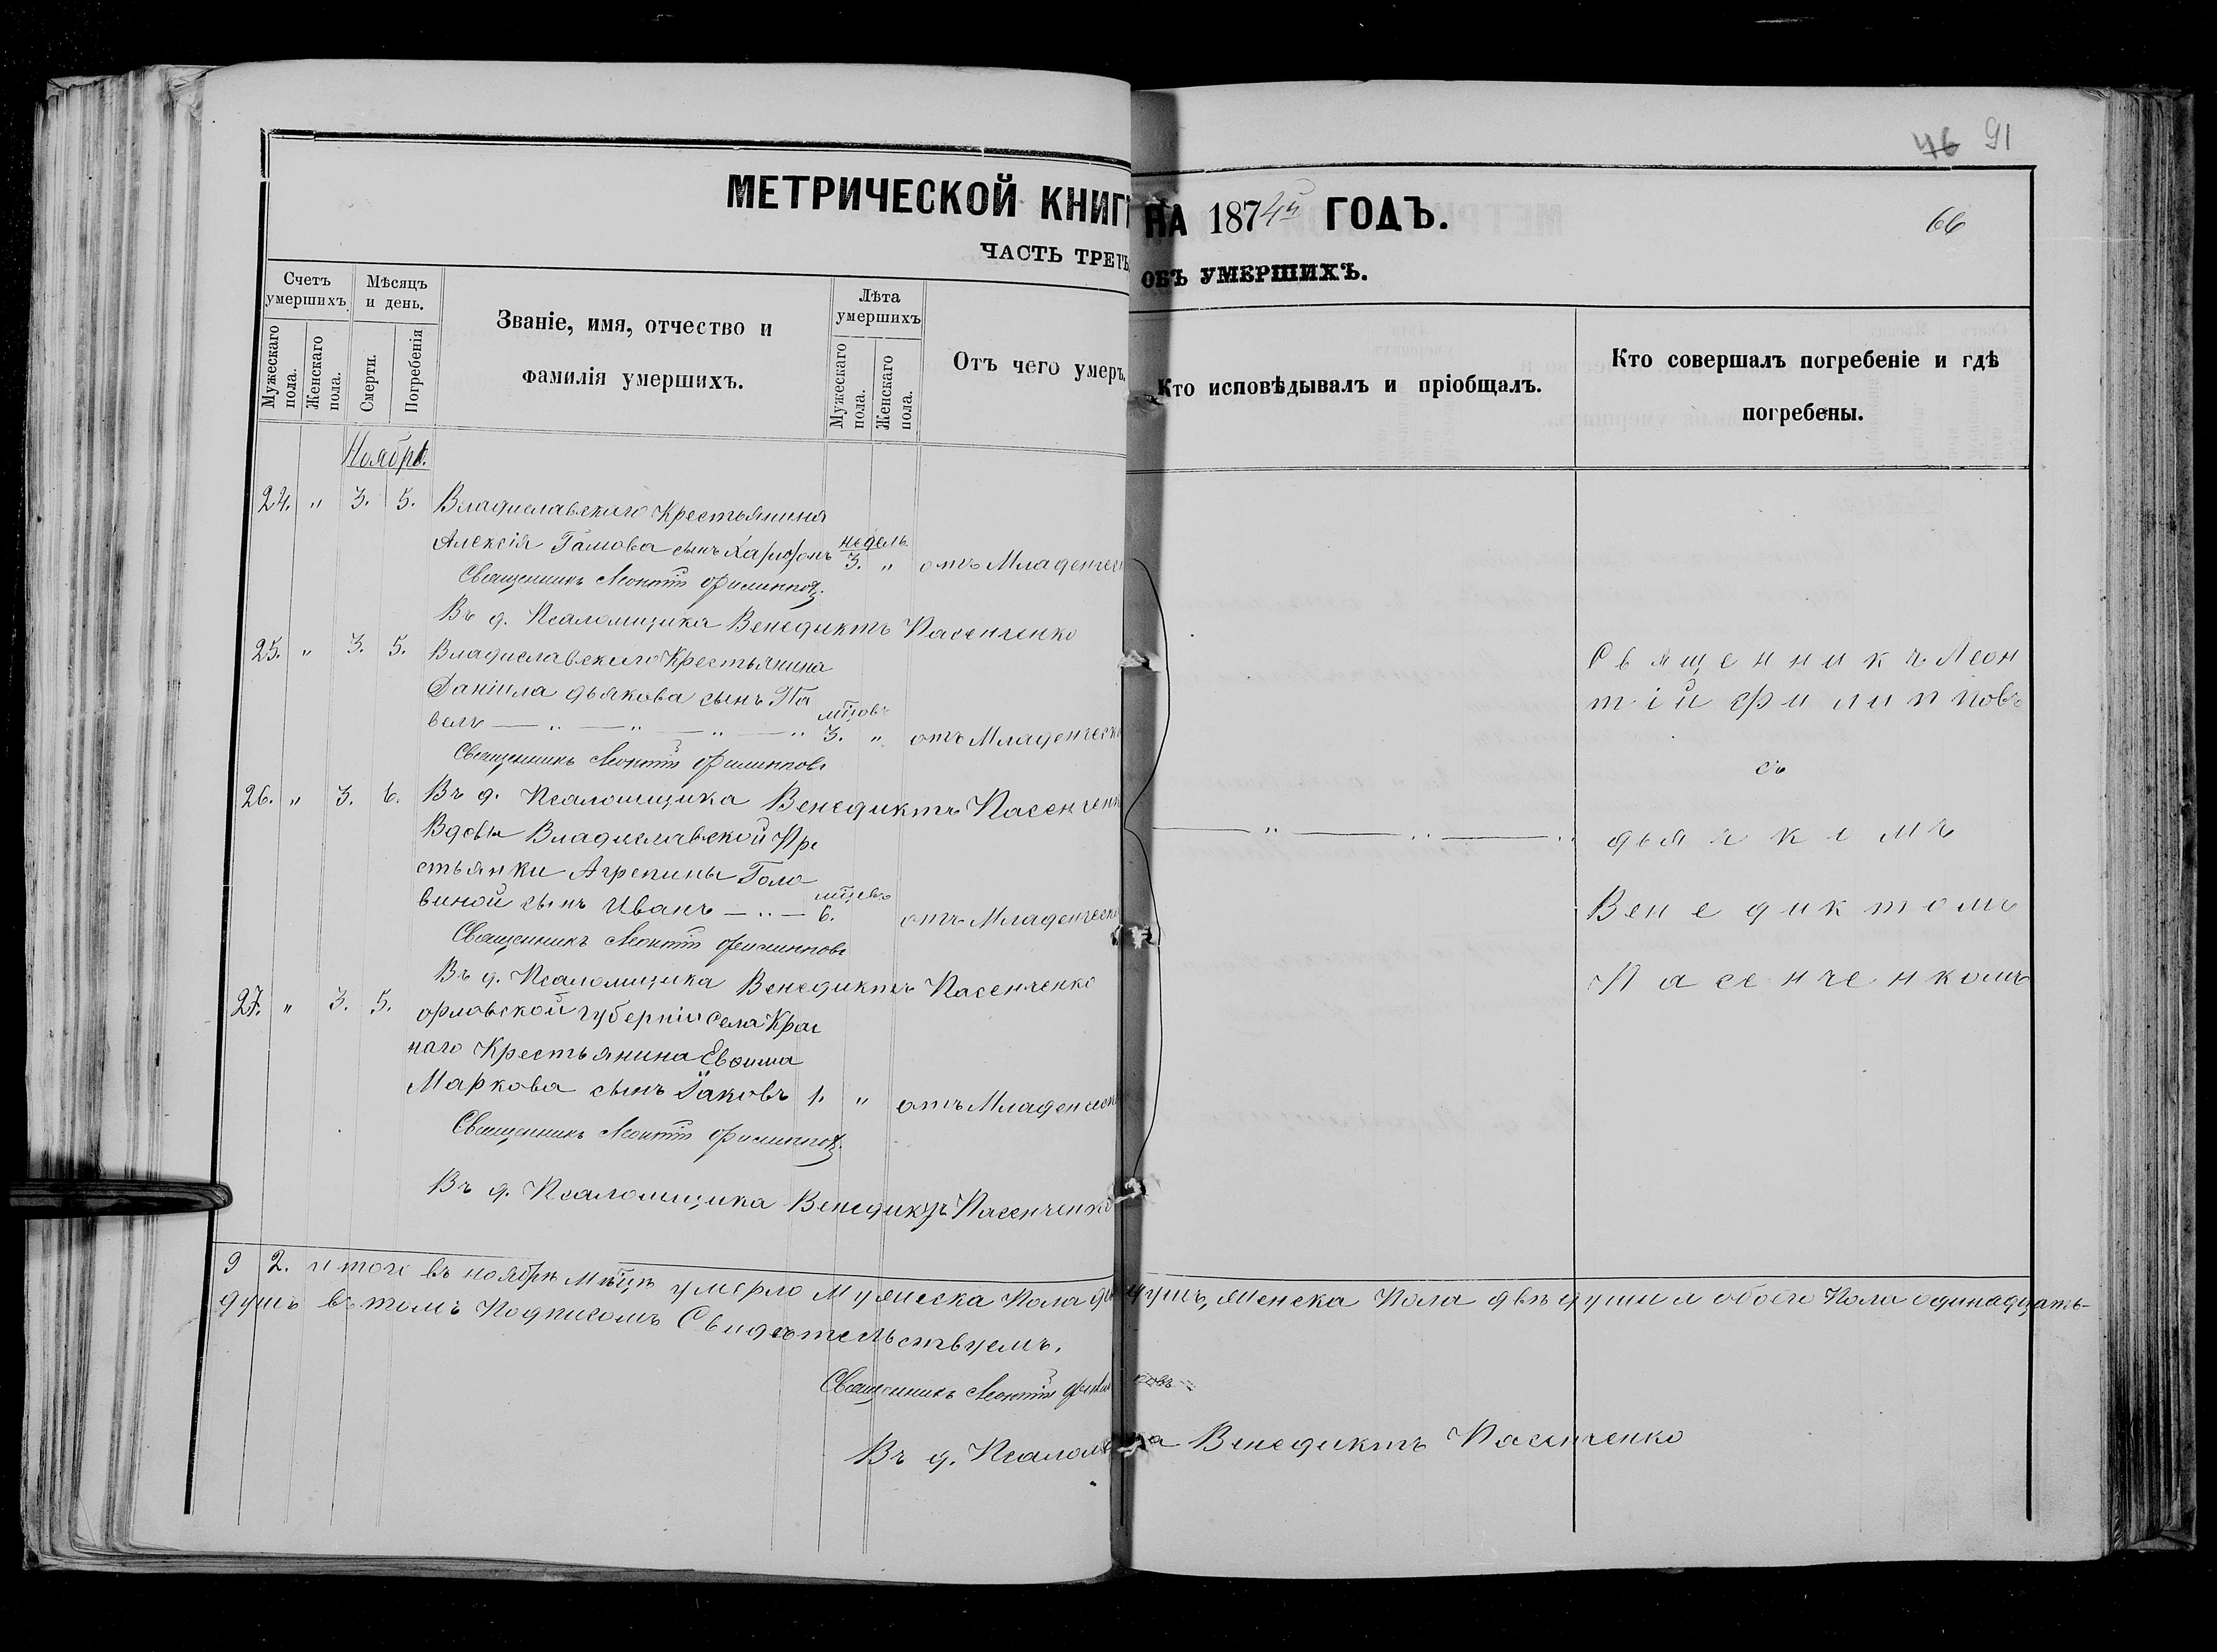 46 91
МЕТРИЧЕСКОЙ КНИГ НА 1874й ГОДЪ.
66
ЧАСТЬ ТРЕТЬ ОБЪ УМЕРШИХЪ.
Счетъ умершихъ.
Мужескаго пола.
Женскаго пола.
Мѣсяцъ и день.
Смерти.
Погребенія
Званіе, имя, отчество и
фамилія умершихъ.
Лѣта умершихъ
Мужескаго пола.
Женскаго пола.
Отъ чего умеръ.
Кто исповѣдывалъ и пріобщалъ.
Кто совершалъ погребеніе и гдѣ
погребены.
Ноября.
24. " 3. 5. Владиславскаго Крестьянина
Алексія Гамова сынъ Харитонъ недель 3. " отъ Младенчес
Священникъ Леонтій Филипповъ.
Въ д. Псаломщика Венедиктъ Пасенченко
25. " 3. 5. Владиславскаго Крестьянина
Даніила дьякова сынъ Па
велъ — " — " — " — " мѣцовъ 3. " отъ Младенческ
Священникъ Леонтій Филипповъ
Въ д. Псаломщика Венедиктъ Пасенченк
26. " 3. 6. Вдовы Владиславской Кре
стьянки Агрепины Голо
виной сынъ Иванъ — " — мѣцевъ 6. отъ Младенческ
Священникъ Леонтій Филипповъ
Въ д. Псаломщика Венедиктъ Пасенченко
27. " 3. 5. орловской губерніи села Крас
наго Крестьянина Евѳима
Маркова сынъ Іаковъ 1. " отъ Младенческ
Священникъ Леонтій Филипповъ.
Въ д. Псаломщика Венедиктъ Пасенченко
Священникъ Леон
тій Филипповъ
съ
— " — " — "
дьячкомъ
Венедиктомъ
Пасенченкомъ
9 2. итого въ ноябрѣ мѣцѣ умерло мужеска Пола душъ, женска Пола двѣ души и обоего Пола одинадцать
душъ въ томъ Подписомъ Свидѣтельствуемъ.
Священникъ Леонтій Филипповъ
Въ д. Псаломщика Венедиктъ Пасенченко